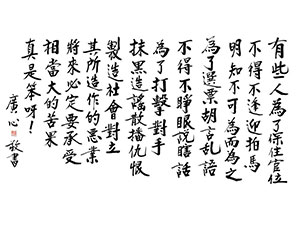 有些人為了保住官位
不得不逢迎拍馬
明知不可為而為之
為了選票胡言乱語
不得不睜眼説瞎話
為了打擊對手
抹黑造謠散播仇恨
製造社會對立
其所造作的惡業
將來必定要承受
相當大的苦果
真是笨呀！
廣心敬書